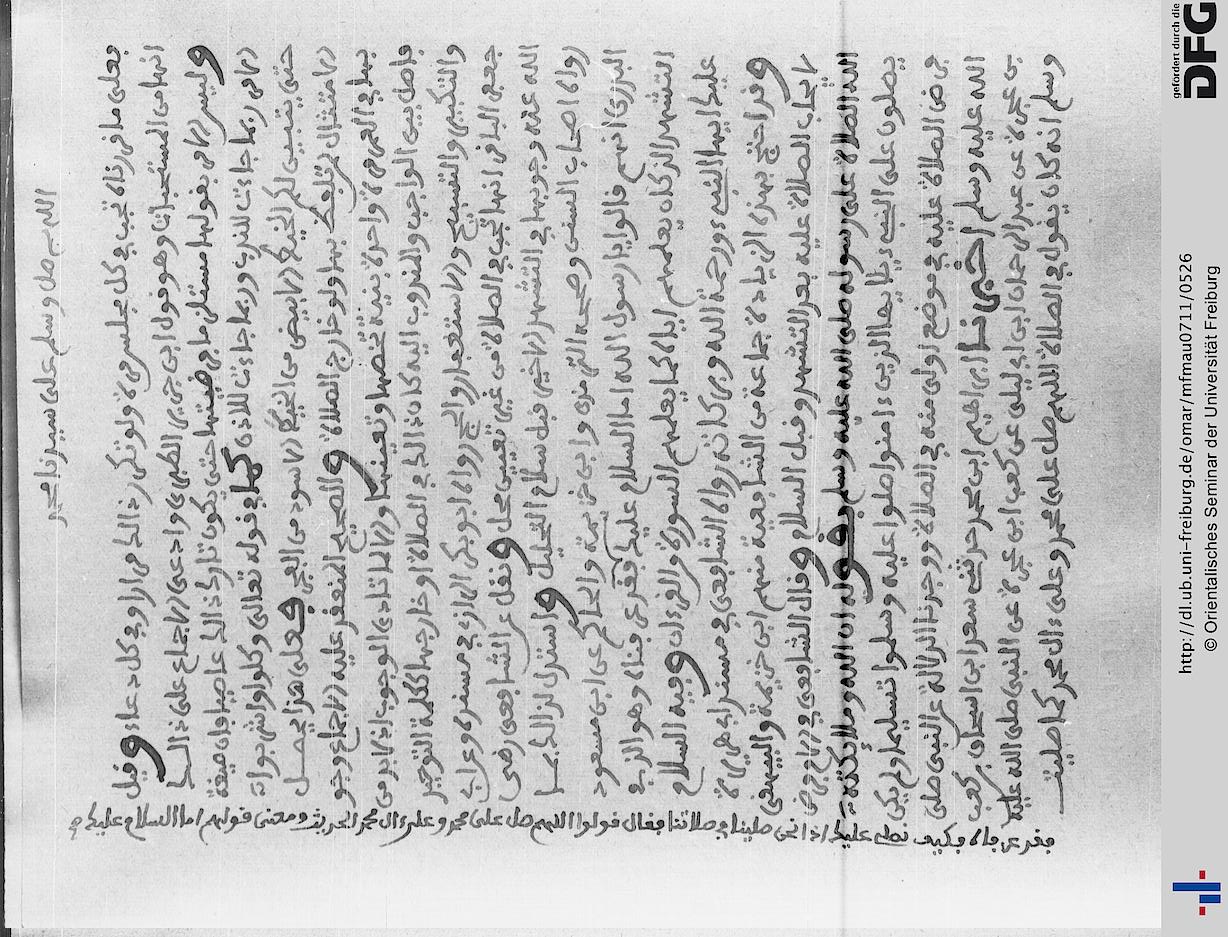 اللهم صل وسلم على سيدنا محمد
فعلى ما قررناه تجب في كل مجلس مرة ولو تكرر ذالك مرارا وفي كل دعاء وقيل
انها من المستحبات وهو قول ابن جرير الطبري وادعى الاجماع على ذالك
وليس الامر بقولها مستلزما من ضيغتها حتى يكون تارك ذالك عاصيا فان صيغة
الامر ربما جاءت للندب وربما جاءت للاذن كما في قوله تعالى وكلوا واشربوا
حتى يتبين لكم الخيط الابيض من الخيط الاسود من الفجر فعلى هذا يحصل
الامتثال لمن تلفظ بها ولو خارج الصلاة والصحيح المنعقد عليه الاجماع وجو
بها في العمر مرة واحدة بنية تخصها وتعينها والا لما تادى الوجوب اذ لا بد من
فاصل بين الواجب والمندوب اليه كان ذالك في الصلاة او خارجها ككلمة التوحيد
والتكبير والتسبيح والاستغفار والحج رواه ابو بكر الرازي في مسفره وعن ابي
جعفر الباقر انها تجب في الصلاة من غير تعيين محل ونقل عن الشافعي رضي
الله عنه وجوبها في التشهد الاخير قبل سلام التحليل واستدل لذالك بما
رواه اصحاب السنن وصححه الترمذي وابن خزيمة والحاكم عن ابن مسعود
البدري انهم قالوا يا رسول الله اما السلام عليك فقد عرفناه وهو الذي في
التشهد الذي كان يعلمهم اياه كما يعلمهم السورة من القرءان وفيه السلام
عليك ايها النبيء ورحمة الله وبركاته رواه الشافعي في مسند ابي هريرة
وقد احتج بهذه الزيادة جماعة من الشافعية منهم ابن خزيمة والبيهقي
لايجاب الصلاة عليه بعد التشهد وقبل السلام وقال الشافعي في الام فرض
الله الصلاة على رسوله صلى الله عليه وسلم بقوله ان الله وملائكته
يصلون على النبيء يا ايها الذين ءامنوا صلوا عليه وسلموا تسليما ولم يكن
فرض الصلاة عليه في موضع اولى منه في الصلاة ووجدنا الدلالة عن النبي صلى
الله عليه وسلم اخبرنا ابراهيم ابن محمد حدثني سعد ابن اسحاق بن كعب
بن عجرة عن عبد الرحمان ابن ابي ليلى عن كعب ابن عجرة عن النبي صلى الله عليه
وسلم انه كان يقول في الصلاة اللهم صل على محمد وعلى ءال محمد كما صليت
فقد عرفناه فكيف نصلي عليك اذا نحن صلينا في صلاتنا فقال قولوا اللهم صل على محمد وعلى ءال محمد الحديث ومعنى قولهم اما السلام عليك
http://dl.ub.uni-freiburg.de/omar/mfmau0711/0526
© Orientalisches Seminar der Universität Freiburg
gefördert durch die
DFG